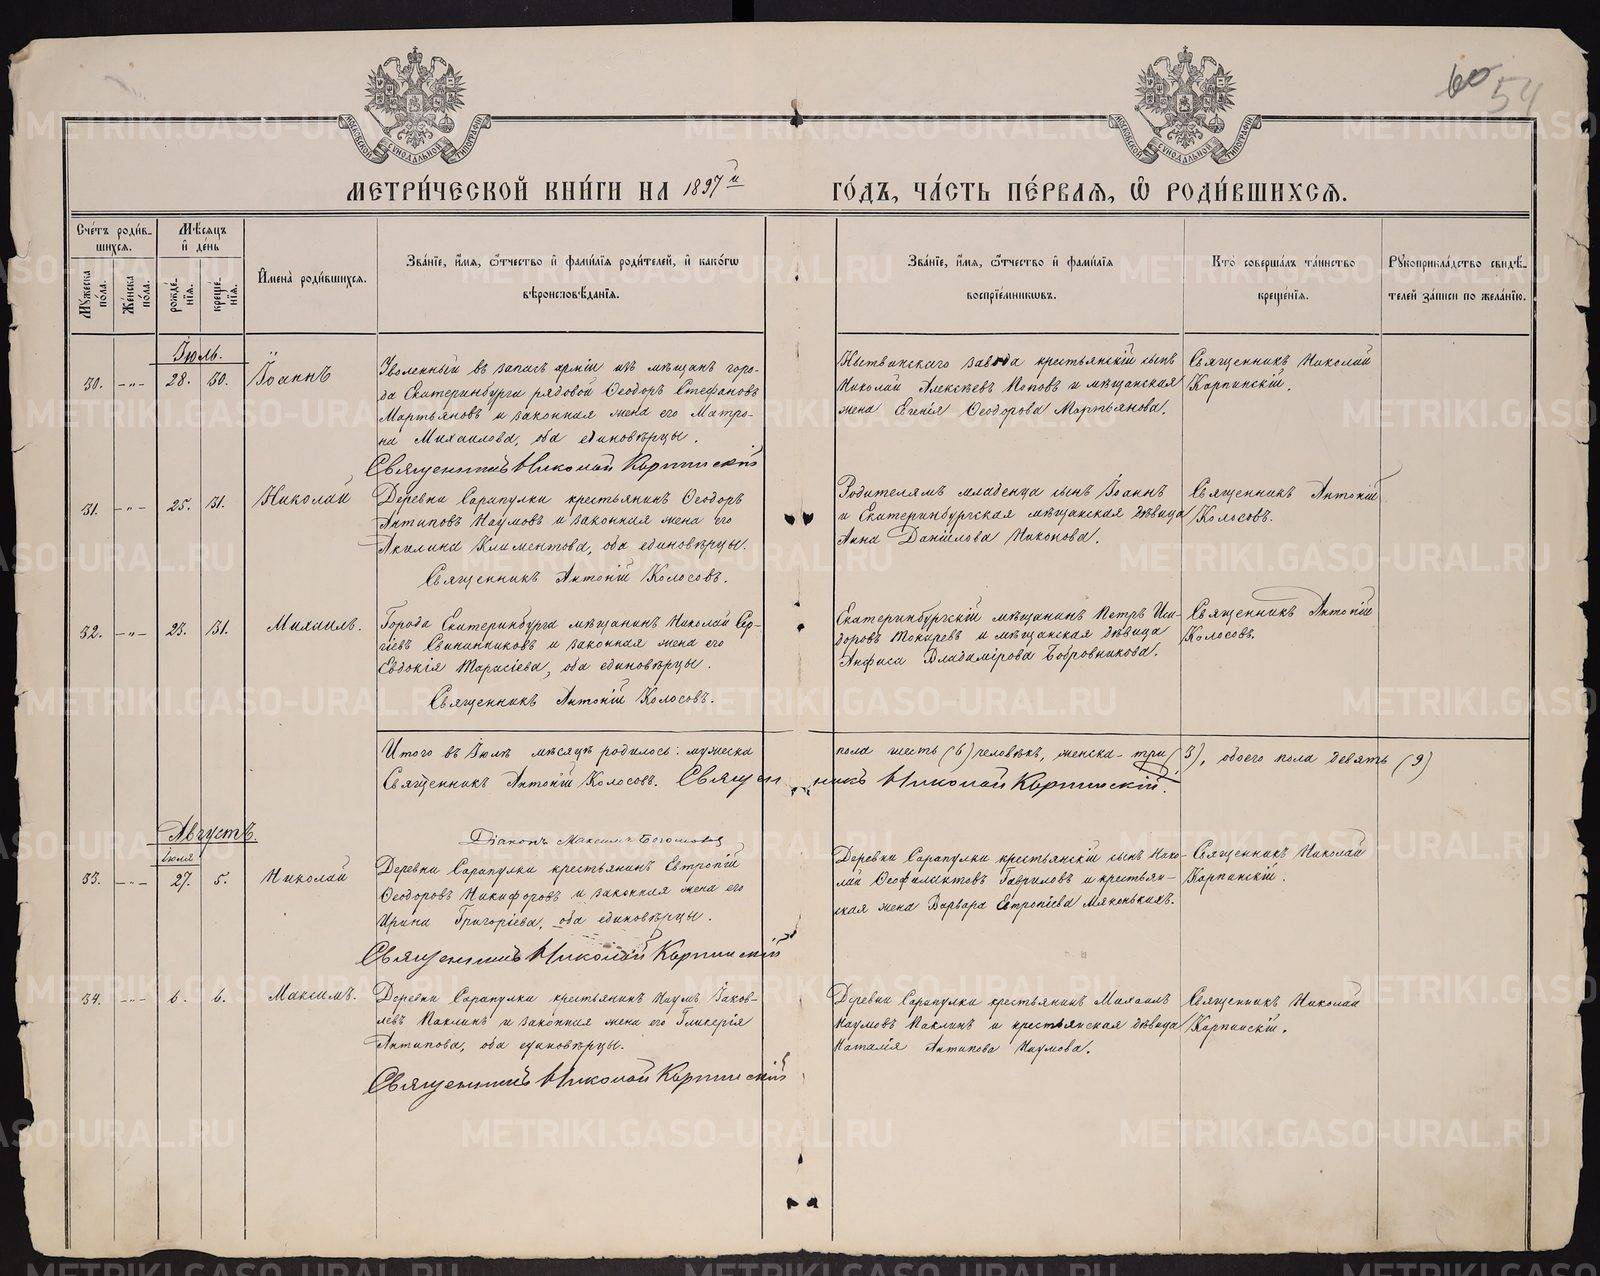 60 54
МОСКОВСКОЙ СѴНОДАЛЬНОЙ ТИПОГРАФІИ
МОСКОВСКОЙ СѴНОДАЛЬНОЙ ТИПОГРАФІИ
МЕТРИ́ЧЕСКОЙ КНИ́ГИ НА 1897й ГО́ДЪ, ЧА́СТЬ ПЕ́РВАѦ, Ѡ҆ РОДИ́ВШИХСѦ.
Сче́тъ роди́в-
шихсѧ.
Мꙋ́жеска по́ла.
Же́нска по́ла.
Мѣ́сѧцъ
и҆ де́нь
рожде́-
нїѧ.
креще́-
нїѧ.
И҆мена̀ роди́вшихсѧ.
Зва́нїе, и҆́мѧ, ѻ҆́тчество и҆ фами́лїѧ роди́телей, и҆ како́гѡ
вѣроисповѣ́данїѧ.
Зва́нїе, и҆́мѧ, ѻ҆́тчество и҆ фами́лїѧ
воспрїе́мникѡвъ.
Кто̀ соверша́лъ та́инство
креще́нїѧ.
Рꙋкоприкла́дство свидѣ́-
телей за́писи по жела́нїю.
Іюль.
30. -"- 28. 30. Іоаннъ
Уволенный въ запасъ арміи изъ мѣщанъ горо-
да Екатеринбурга рядовой Ѳеодоръ Стефановъ
Мартьяновъ и законная жена его Матро-
на Михаилова, оба единовѣрцы.
Священникъ Николай Карпинскій
Нытвинскаго завода крестьянскій сынъ
Николай Алексѣевъ Поповъ и мѣщанская
жена Евгенія Ѳеодорова Мартьянова.
Священникъ Николай
Карпинскій.
31. -"- 25. 31. Николай
Деревни Сарапулки крестьянинъ Ѳеодоръ
Антиповъ Наумовъ и законная жена его
Акилина Климентова, оба единовѣрцы.
Священникъ Антоній Колосовъ.
Родителямъ младенца сынъ Іоаннъ
и Екатеринбургская мѣщанская дѣвица
Анна Даніилова Никонова.
Священникъ Антоній
Колосовъ.
32. -"- 23. 31. Михаилъ.
Города Екатеринбурга мѣщанинъ Николай Сер-
гіевъ Свинанниковъ и законная жена его
Евдокія Тарасіева, оба единовѣрцы.
Священникъ Антоній Колосовъ.
Екатеринбургскій мѣщанинъ Петръ Иси-
доровъ Токаревъ и мѣщанская дѣвица
Анфиса Владимірова Бобровникова.
Священникъ Антоній
Колосовъ.
Итого въ Іюлѣ мѣсяцѣ родилось: мужеска пола шесть (6) человѣкъ, женска три (3), обоего пола девять (9)
Священникъ Антоній Колосовъ. Священникъ Николай Карпинскій.
Августъ.
Діаконъ Максимъ
іюля
33. -"- 27. 5. Николай
Деревни Сарапулки крестьянинъ Евтропій
Ѳеодоровъ Никифоровъ и законная жена его
Ирина Григоріева, оба единовѣрцы.
Священникъ Николай Карпинскій
Деревни Сарапулки крестьянскій сынъ Нико-
лай Ѳеофилактовъ Гавриловъ и крестьян-
ская жена Варвара Евтропіева Мяконькихъ.
Священникъ Николай
Карпинскій.
34. -"- 6. 6. Максимъ.
Деревни Сарапулки крестьянинъ Наумъ Іаков-
левъ Паклинъ и законная жена его Гликерія
Антипова, оба единовѣрцы.
Священникъ Николай Карпинскій
Деревни Сарапулки крестьянинъ Михаилъ
Наумовъ Паклинъ и крестьянская дѣвица
Наталія Антипова Наумова.
Священникъ Николай
Карпинскій.